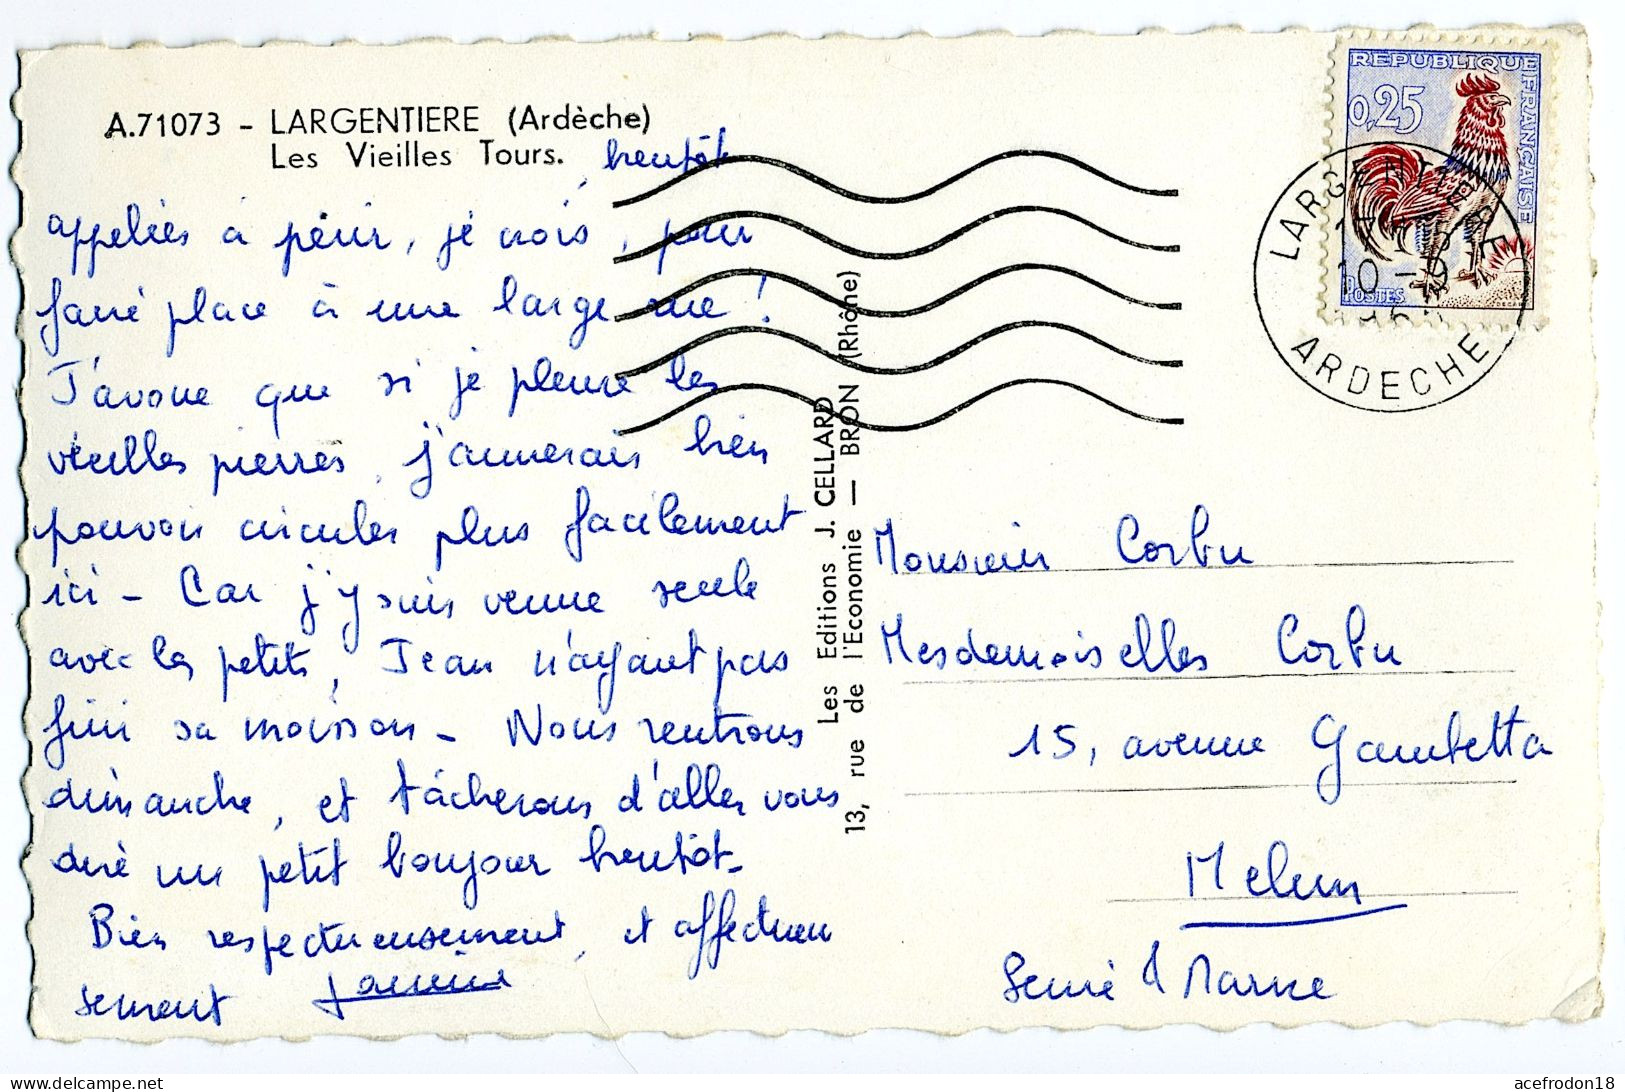 A.71073 - LARGENTIERE (Ardèche)
Les Vieilles Tours. bientôt
appelées à périr, je crois, pour
faire place à une large rue !
J'avoue que si je pleure les
vieilles pierres, j'aimerais bien
pouvoir circuler plus facilement
ici - Car j'y suis venue seule
avec les petits, Jean n'ayant pas
fini sa moisson - Nous rentrons
dimanche, et tâcherons d'aller vous
dire un petit bonjour bientôt -
Bien respectueusement, et affectueu
sement Janine
Les Editions J. CELLARD
13, rue de l'Economie — BRON (Rhône)
REPUBLIQUE FRANÇAISE
0,25
POSTES
LARGENTIERE
10 -
ARDECHE
Monsieur Corbu
Mesdemoiselles Corbu
15, avenue Gambetta
Melun
Seine & Marne
acefrodon18